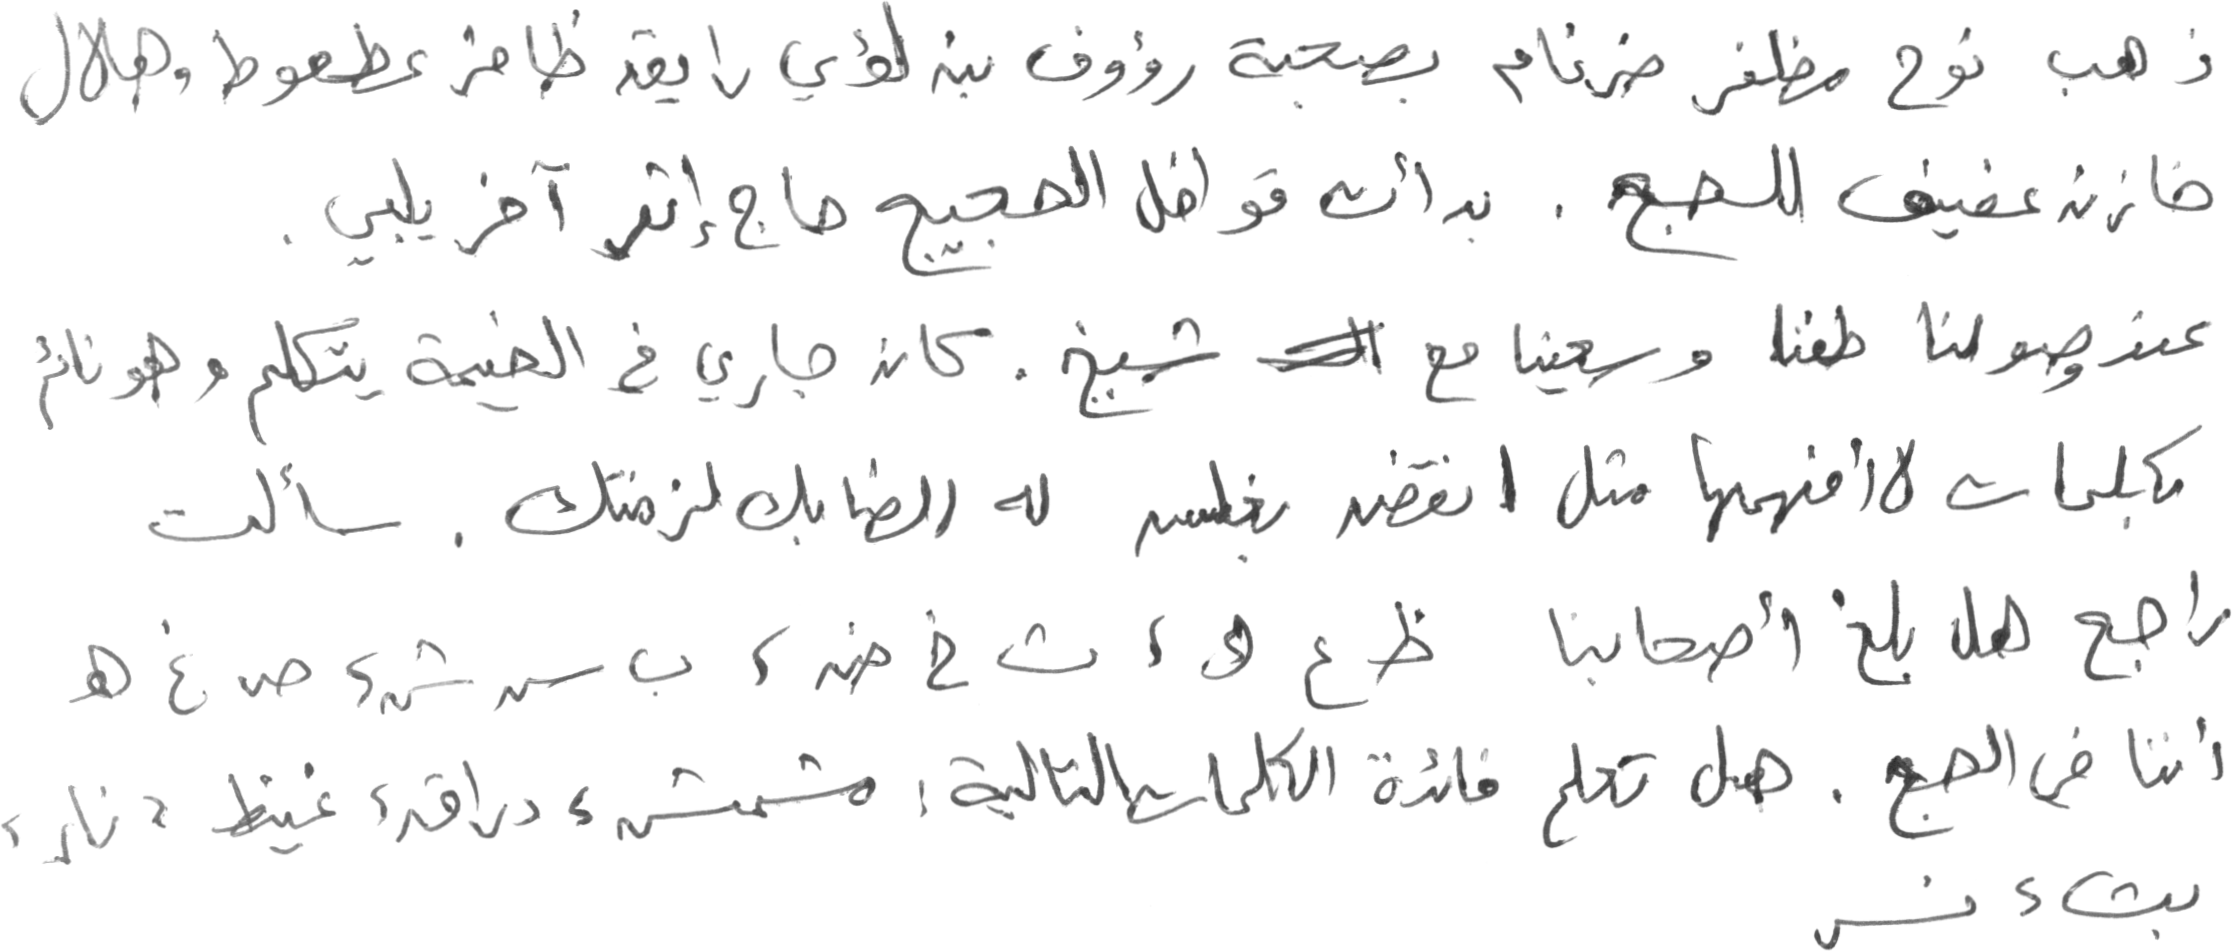 ذهب نوح مظفر ضرغام بصحبة رؤوف بن لؤي رايق ظافر عطعوط وهلال
خازن عفيف للحج . بدأت قوافل الحجيج حاج إثر آخر يلبي .
عند وصولنا طفنا وسعينا مع شيخ . كان جاري في الخيمة يتكلم وهو نائم
بكلمات لا أفهمها مثل انقض بغطس له الضابك لزمتك . سألت
راجح هل بلغ أصحابنا ظ ع ك ، ث خ ض ، ب س ش ، ص غ هـ
أننا في الحج . هل تعلم فائدة الكلمات التالية : مشمش ، دراق ، غيظ ، نار ،
بث ، نس